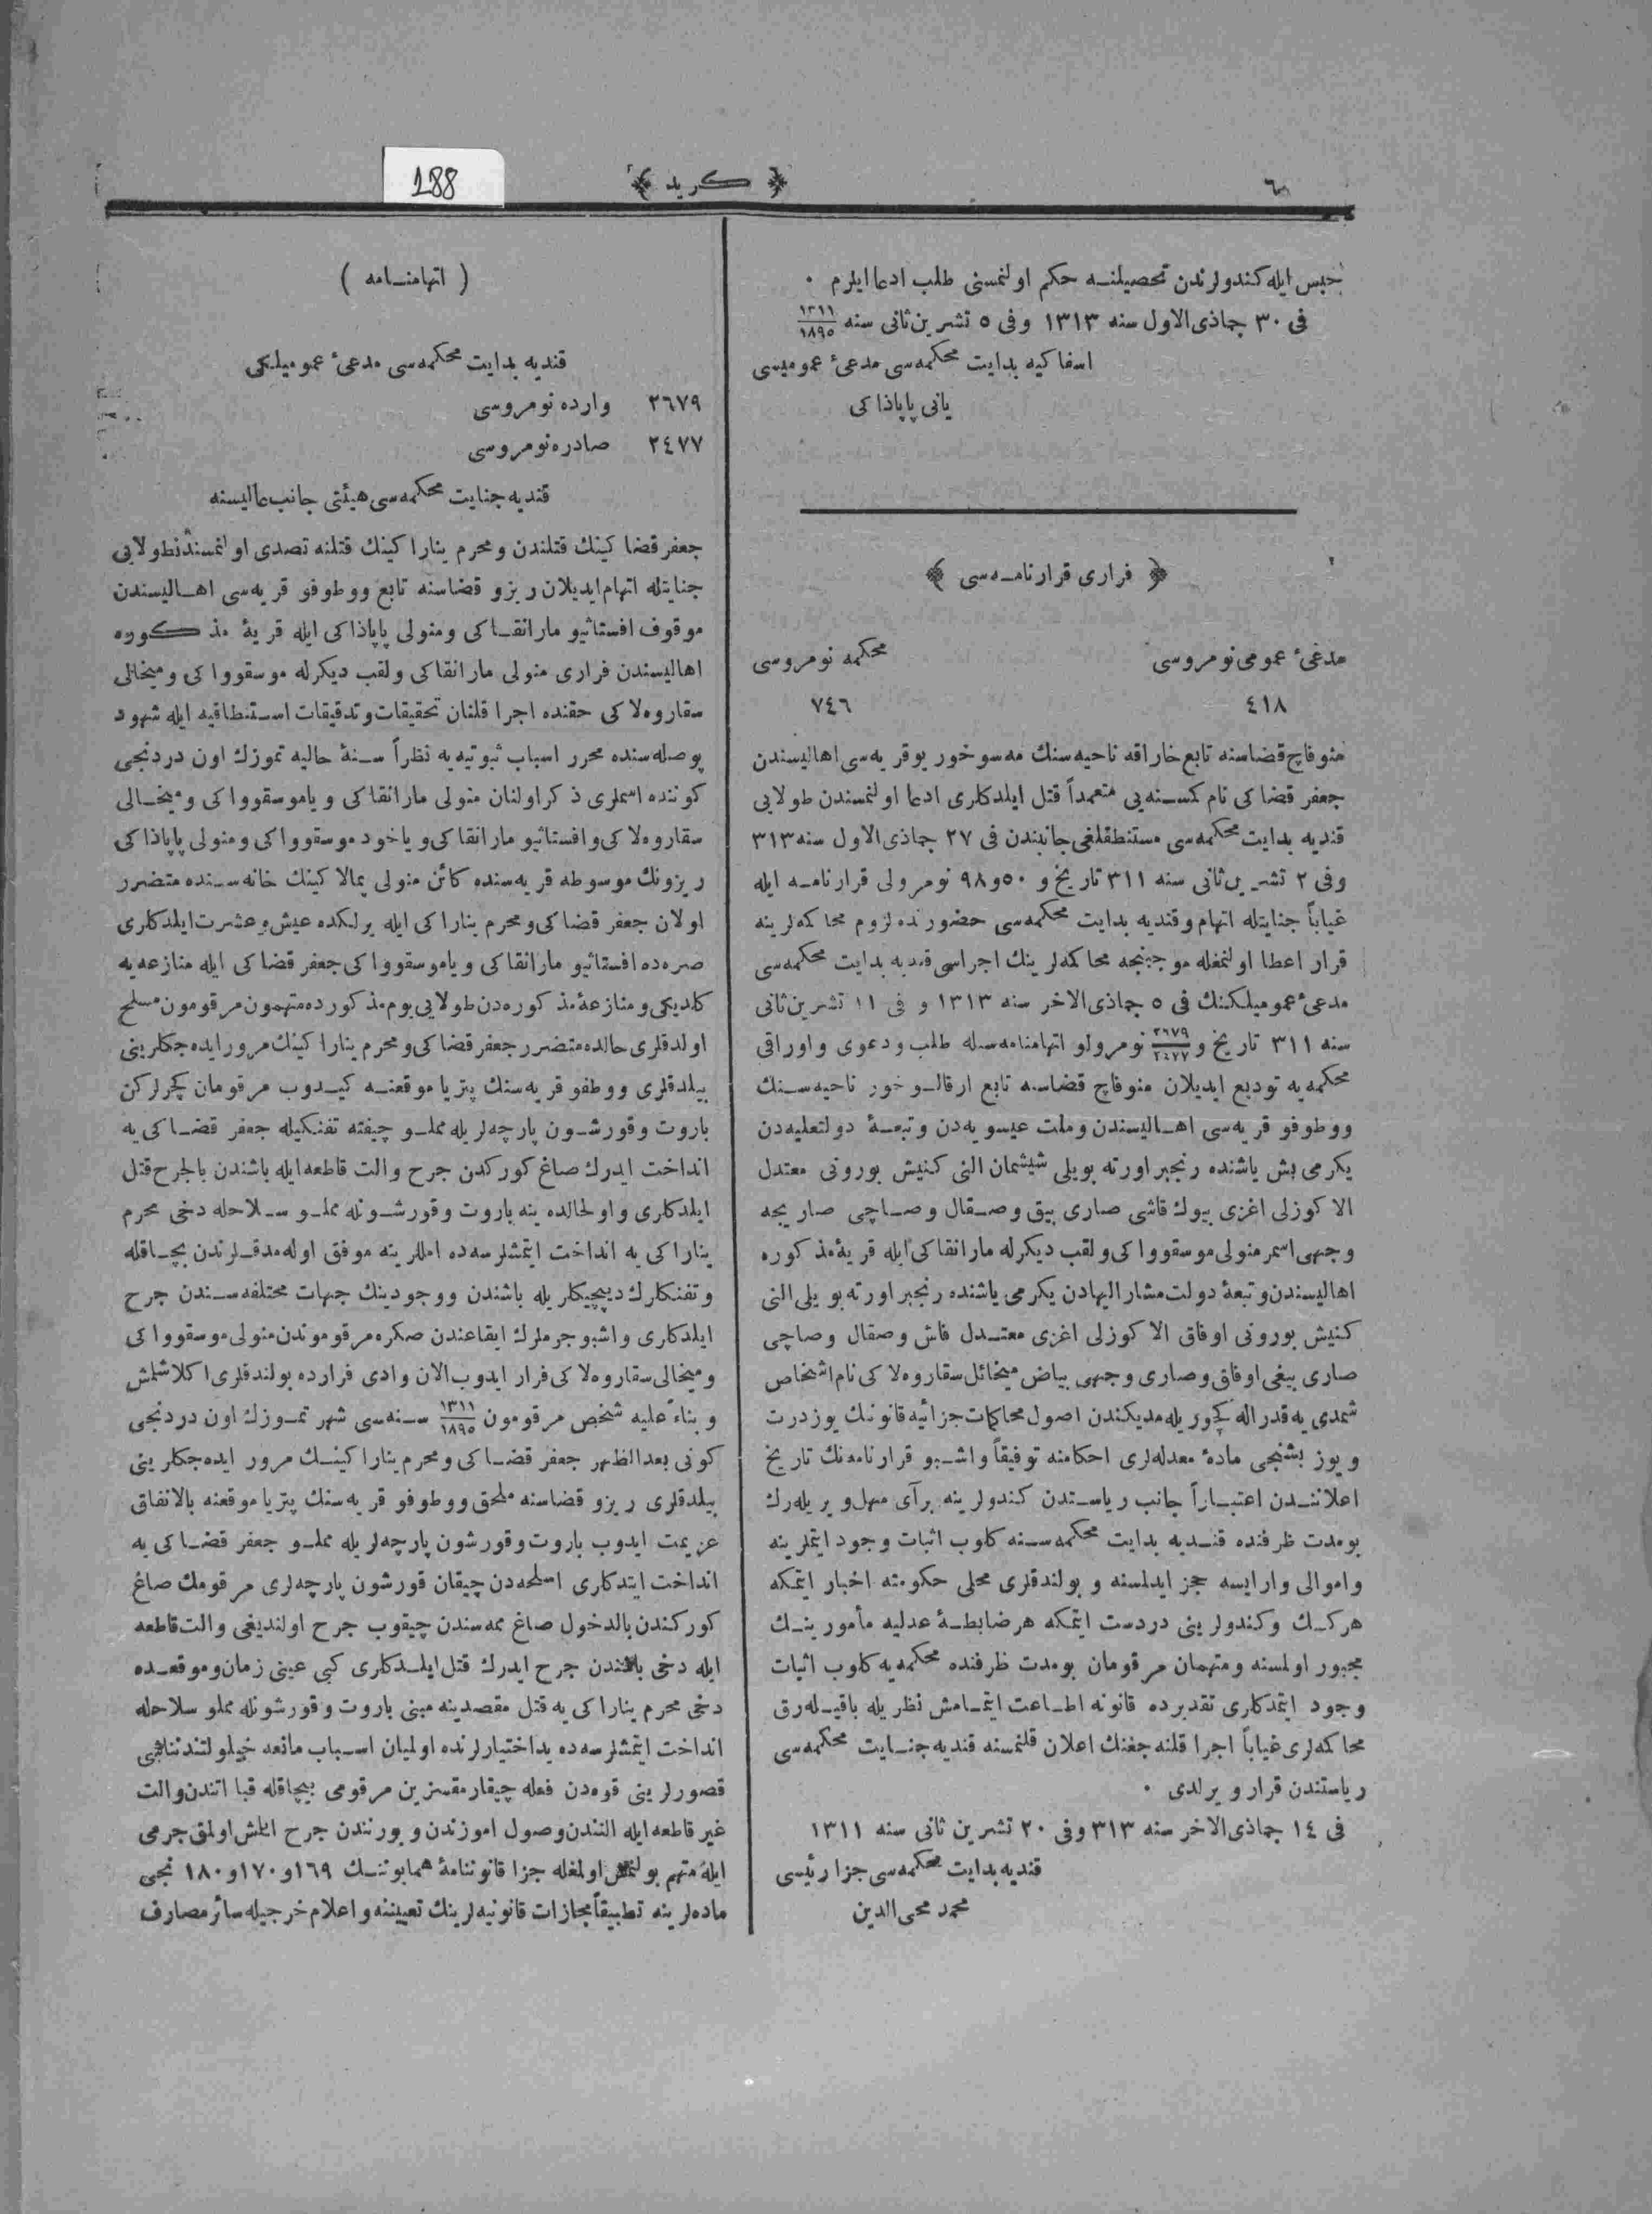 ٦
﴿ كريد ﴾
188
حبس ايله كندولرندن تحصيلنه حكم اولنمسنى طلب ادعا ايلرم ٠
فى ٣٠ جماذى الاول سنه ١٣١٣ وفى ٥ تشرين ثانى سنه ١٣١١/١٨٩٥
اسفاكيه بدايت محكمه‌سى مدعىء عموميسى
يانى پاپاذاكى
﴿ فرارى قرارنامه‌سى ﴾
مدعىء عمومى نومروسى محكمه نومروسى
٤١٨ ٧٤٦
منوفاچ قضاسنه تابع خاراقه ناحيه‌سنك مه‌سوخوريو قريه‌سى اهاليسندن
جعفر قضاكى نام كمسنه‌يى متعمداً قتل ايلدكلرى ادعا اولنمسندن طولايى
قنديه بدايت محكمه‌سى مستنطقلغى جانبندن فى ٢٧ جماذى الاول سنه ٣١٣
وفى ٢ تشرين ثانى سنه ٣١١ تاريخ و ٥٠ و ٩٨ نومرولى قرارنامه ايله
غياباً جنايتله اتهام وقنديه بدايت محكمه‌سى حضورنده لزوم محاكمه‌لرينه
قرار اعطا اولنمغله موجبنجه محاكمه‌لرينك اجراسى قنديه بدايت محكمه‌سى
مدعىء عموميلكنك فى ٥ جماذى الاخر سنه ١٣١٣ و فى ١١ تشرين ثانى
سنه ٣١١ تاريخ و ٢٦٧٩/٢٤٧٧ نومرولو اتهامنامه‌سله طلب ودعوى واوراقى
محكمه‌يه توديع ايديلان منوفاچ قضاسنه تابع ارقالوخور ناحيه‌سنك
ووطوفو قريه‌سى اهاليسندن وملت عيسويه‌دن وتبعۀ دولتعليه‌دن
يكرمى بش ياشنده رنجبر اورته بويلى شيشمان النى كنيش بورونى معتدل
الا كوزلى اغزى بيوك قاشى صارى بيق وصقال وصاچى صاريجه
وجهى اسمر منولى موسقوواكى ولقب ديكرله مارانقاكى ايله قريۀ مذكوره
اهاليسندن وتبعۀ دولت مشاراليهادن يكرمى ياشنده رنجبر اورته بويلى النى
كنيش بورونى اوفاق الا كوزلى اغزى معتدل قاش وصقال وصاچى
صارى بيغى اوفاق وصارى وجهى بياض ميخائل سقاروه‌لاكى نام اشخاص
شمدى‌يه قدر اله كچوريله‌مديكندن اصول محاكمات جزائيه قانوننك يوز درت
ويوز بشنجى مادۀ معدله‌لرى احكامنه توفيقاً واشبو قرارنامه‌نك تاريخ
اعلانندن اعتباراً جانب رياستدن كندولرينه بر آى مهل ويريله‌رك
بومدت ظرفنده قنديه بدايت محكمه‌سنه كلوب اثبات وجود ايتملرينه
واموالى وار ايسه حجز ايدلمسنه و بولندقلرى محلى حكومته اخبار ايتمكه
هركك وكندولرينى دردست ايتمكه هر ضابطۀ عدليه مأمورينك
مجبور اولمسنه ومتهمان مرقومان بومدت ظرفنده محكمه‌يه كلوب اثبات
وجود ايتمدكلرى تقديرده قانونه اطاعت ايتمامش نظريله باقيله‌رق
محاكمه‌لرى غياباً اجرا قلنه جغنك اعلان قلنمسنه قنديه جنايت محكمه‌سى
رياستندن قرار ويرلدى ٠
فى ١٤ جماذى الاخر سنه ٣١٣ وفى ٢٠ تشرين ثانى سنه ١٣١١
قنديه بدايت محكمه‌سى جزا رئيسى
محمد محى الدين
( اتهامنامه )
قنديه بدايت محكمه‌سى مدعىء عموميلكى
٢٦٧٩ وارده نومروسى
٢٤٧٧ صادره نومروسى
قنديه جنايت محكمه‌سى هيئتى جانب عاليسنه
جعفر قضاكينك قتلندن ومحرم يناراكينك قتلنه تصدى اولنمسندنطولايى
جنايتله اتهام ايديلان ريزو قضاسنه تابع ووطوفو قريه‌سى اهاليسندن
موقوف افستاثيو مارانقاكى ومنولى پاپاذاكى ايله قريۀ مذكوره
اهاليسندن فرارى منولى مارانقاكى ولقب ديكرله موسقوواكى وميخالى
سقاروه‌لاكى حقنده اجرا قلنان تحقيقات وتدقيقات استنطاقيه ايله شهود
پوصله‌سنده محرر اسباب ثبوتيه‌يه نظراً سنۀ حاليه تموزك اون دردنجى
كوننده اسملرى ذكر اولنان منولى مارانقاكى وياموسقوواكى وميخالى
سقاروه‌لاكى وافستاثيو مارانقاكى وياخود موسقوواكى ومنولى پاپاذاكى
ريزونك موسوطه قريه‌سنده كائن منولى يمالاكينك خانه‌سنده متضرر
اولان جعفر قضاكى ومحرم يناراكى ايله برلكده عيش وعشرت ايلدكلرى
صره‌ده افستاثيو مارانقاكى وياموسقوواكى جعفر قضاكى ايله منازعه‌يه
كلديكى ومنازعۀ مذكوره‌دن طولايى يوم مذكورده متهمون مرقومون مسلح
اولدقلرى حالده متضرر جعفر قضاكى ومحرم يناراكينك مرور ايده‌جكلرينى
بيلدقلرى ووطفو قريه‌سنك پتريا موقعنه كيدوب مرقومان كچرلركن
باروت وقورشون پارچه‌لريله مملو چيفته تفنكيله جعفر قضاكى‌يه
انداخت ايدرك صاغ كوركدن جرح والت قاطعه ايله باشندن بالجرح قتل
ايلدكلرى واولحالده ينه باروت وقورشونله مملو سلاحله دخى محرم
يناراكى‌يه انداخت ايتمشلرسه‌ده امللرينه موفق اوله‌مدقلرندن بچاقله
وتفنكلرك ديپچيكلريله باشندن ووجودينك جهات مختلفه‌سندن جرح
ايلدكلرى واشبو جرملرك ايقاعندن صكره مرقوموندن منولى موسقوواكى
وميخالى سقاروه‌لاكى فرار ايدوب الان وادى فرارده بولندقلرى اكلاشلمش
و بناءً عليه شخص مرقومون ١٣١١/١٨٩٥ سنه‌سى شهر تموزك اون دردنجى
كونى بعدالظهر جعفر قضاكى ومحرم يناراكينك مرور ايده‌جكلرينى
بيلدقلرى ريزو قضاسنه ملحق ووطوفو قريه‌سنك پتريا موقعنه بالاتفاق
عزيمت ايدوب باروت وقورشون پارچه‌لريله مملو جعفر قضاكى‌يه
انداخت ايتدكلرى اسلحه‌دن چيقان قورشون پارچه‌لرى مرقومك صاغ
كوركندن بالدخول صاغ ممه‌سندن چيقوب جرح اولنديغى والت قاطعه
ايله دخى باشندن جرح ايدرك قتل ايلدكلرى كبى عينى زمان وموقعده
دخى محرم يناراكى‌يه قتل مقصدينه مبنى باروت وقورشونله مملو سلاحله
انداخت ايتمشلرسه‌ده يداختيارلرنده اولميان اسباب مانعه حيلولتندنناشى
قصورلرينى قوه‌دن فعله چيقارمقسزين مرقومى بيچاقله قبا اتندن والت
غير قاطعه ايله النندن وصول اموزندن وبورنندن جرح ايلمش اولمق جرمى
ايله متهم بولنمش اولمغله جزا قانوننامۀ همايوننك ١٦٩ و ١٧٠ و ١٨٠ نجى
ماده‌لرينه تطبيقاً مجازات قانونيه‌لرينك تعييننه واعلام خرجيله سائر مصارف